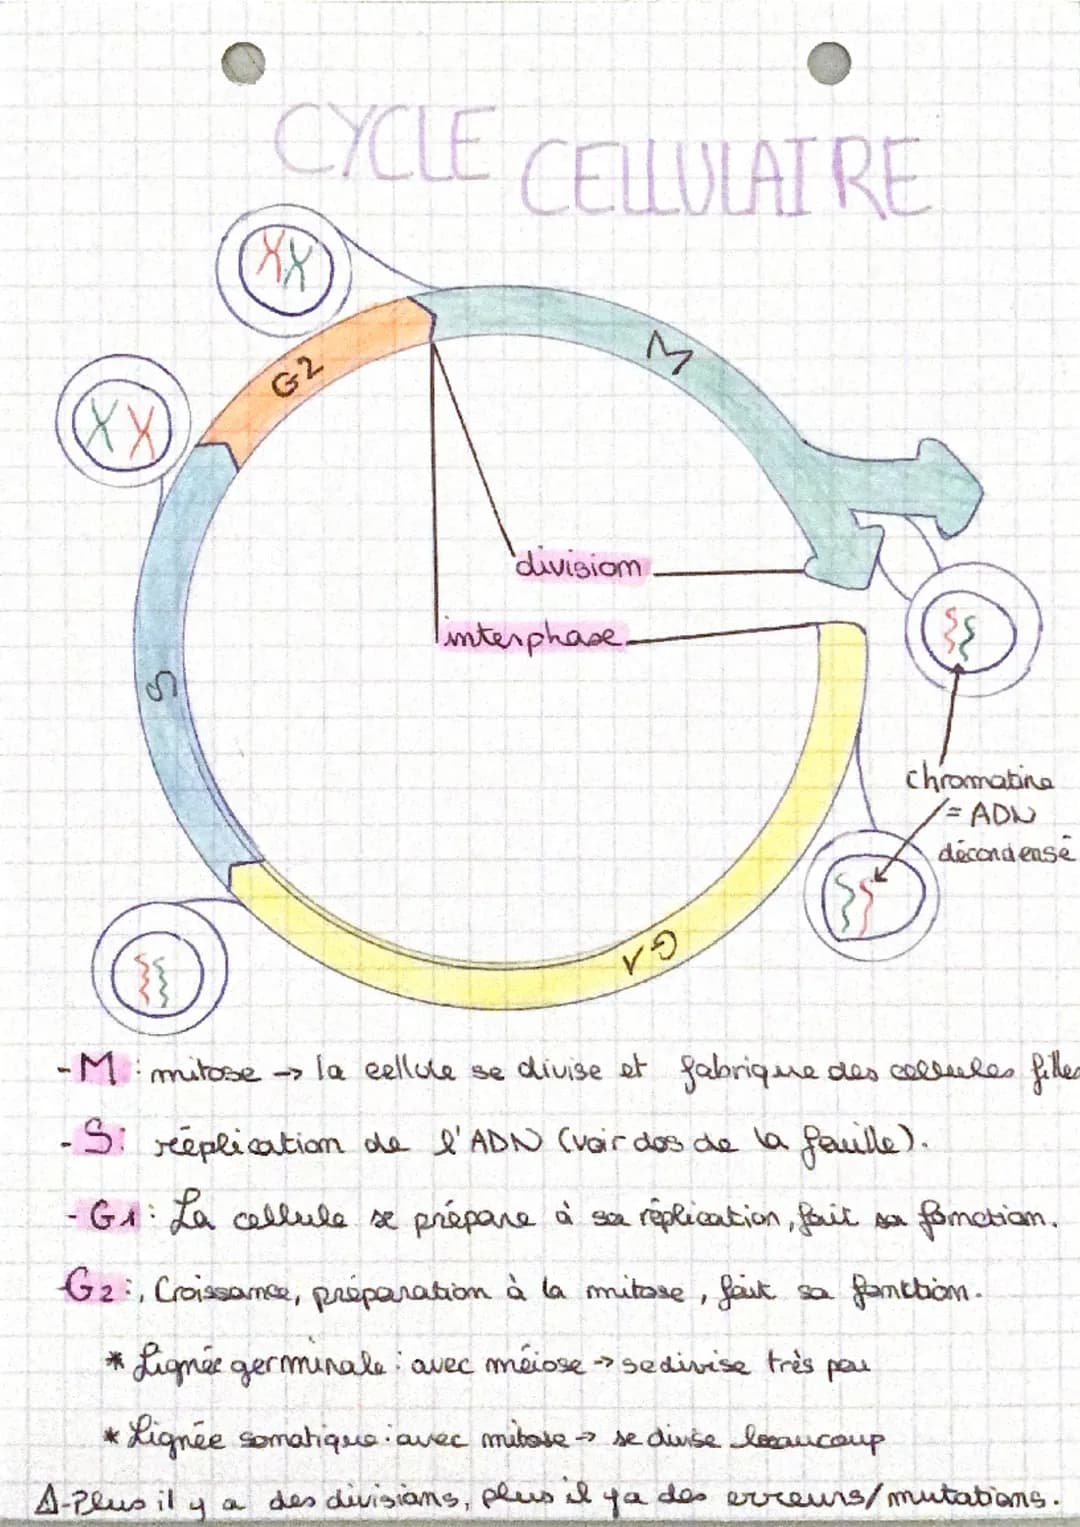 CYCLE CELLULAIRE
M
G2
division
interphase
S
chromatine
= ADN
décondensé
G1
- M : mitose → la cellule se divise et fabrique des cellules filles
- S : rééplication de l'ADN (voir dos de la feuille).
- G1 : La cellule se prépare à sa réplication, fait sa fonction.
- G2 : , Croissance, préparation à la mitose, fait sa fonction.
* Lignée germinale : avec méiose → se divise très peu
* Lignée somatique : avec mitose → se divise beaucoup
⚠-Plus il y a des divisions, plus il ya des erreurs/mutations.